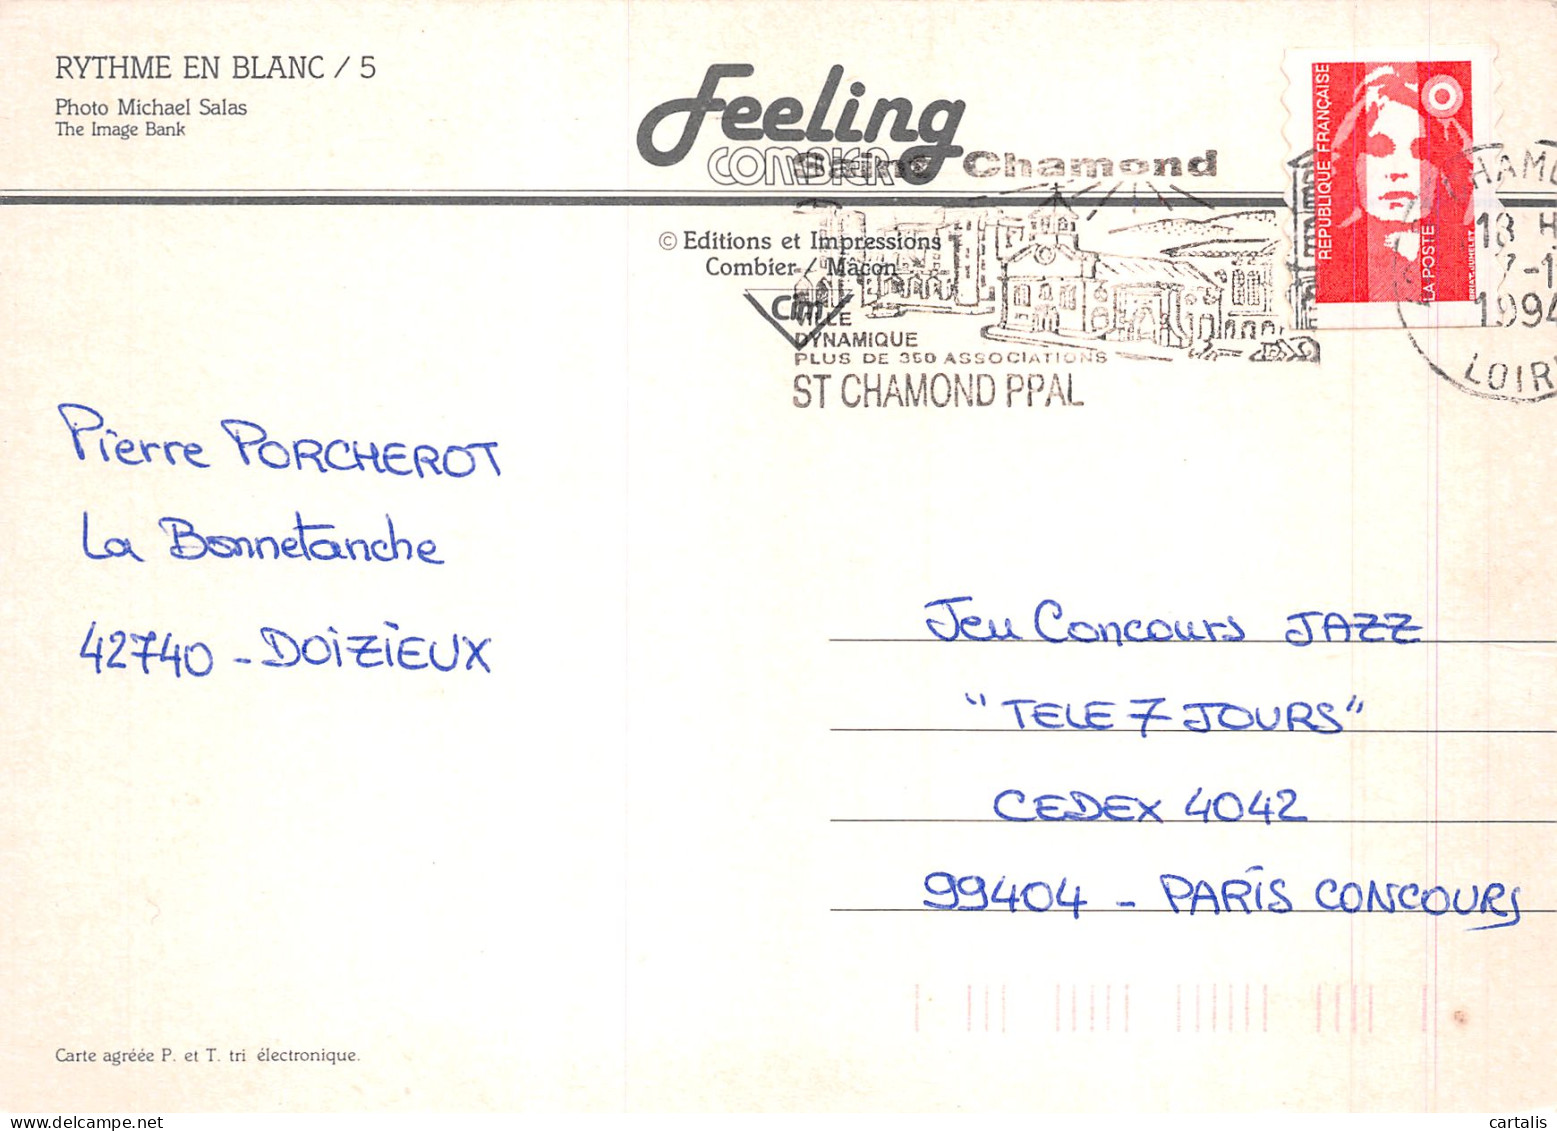 RYTHME EN BLANC / 5
Photo Michael Salas
The Image Bank
Feeling
COMBIER
Saint Chamond
© Editions et Impressions
Combier / Mâcon
Cim
VILLE
DYNAMIQUE
PLUS DE 350 ASSOCIATIONS
ST CHAMOND PPAL
REPUBLIQUE FRANÇAISE
LA POSTE
CHAMO
18 H
7-1
1994
LOIR
Pierre PORCHEROT
La Bonnetanche
42740 - DOIZIEUX
Jeu Concours JAZZ
"TELE 7 JOURS"
CEDEX 4042
99404 - PARIS CONCOURS
Carte agréée P. et T. tri électronique.
cartalis